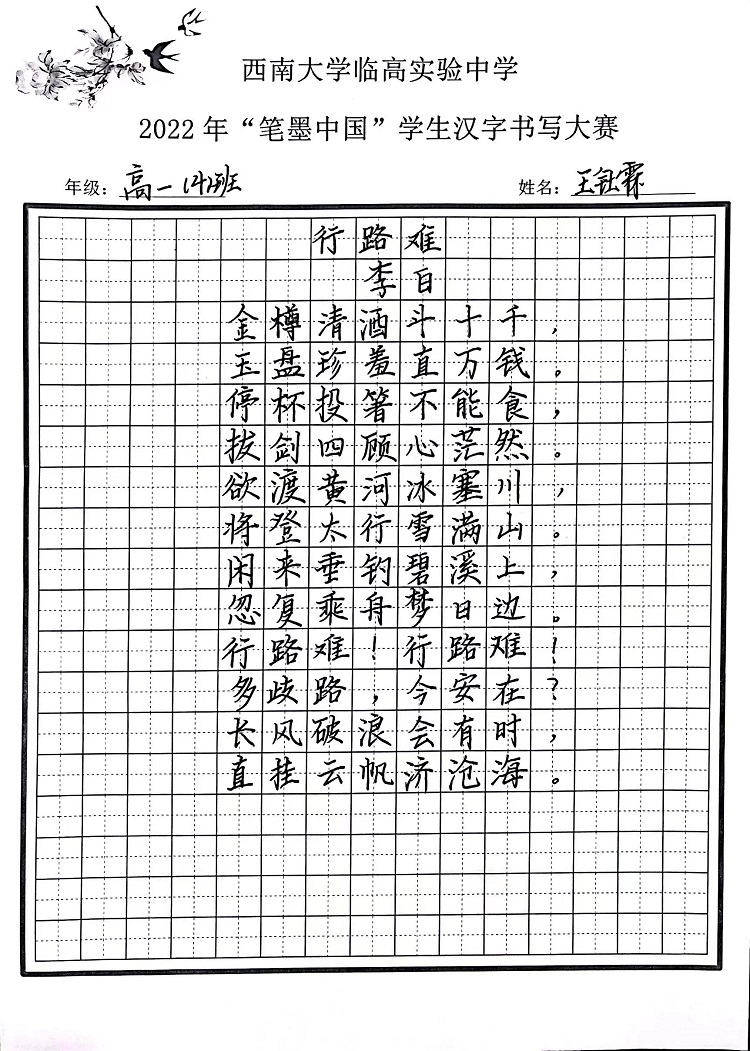 西南大学临高实验中学
2022年“笔墨中国”学生汉字书写大赛
年级：高一142班 姓名：王钰霖
行路难
李白
金樽清酒斗十千，
玉盘珍羞直万钱。
停杯投箸不能食，
拔剑四顾心茫然。
欲渡黄河冰塞川，
将登太行雪满山。
闲来垂钓碧溪上，
忽复乘舟梦日边。
行路难！行路难！
多歧路，今安在？
长风破浪会有时，
直挂云帆济沧海。